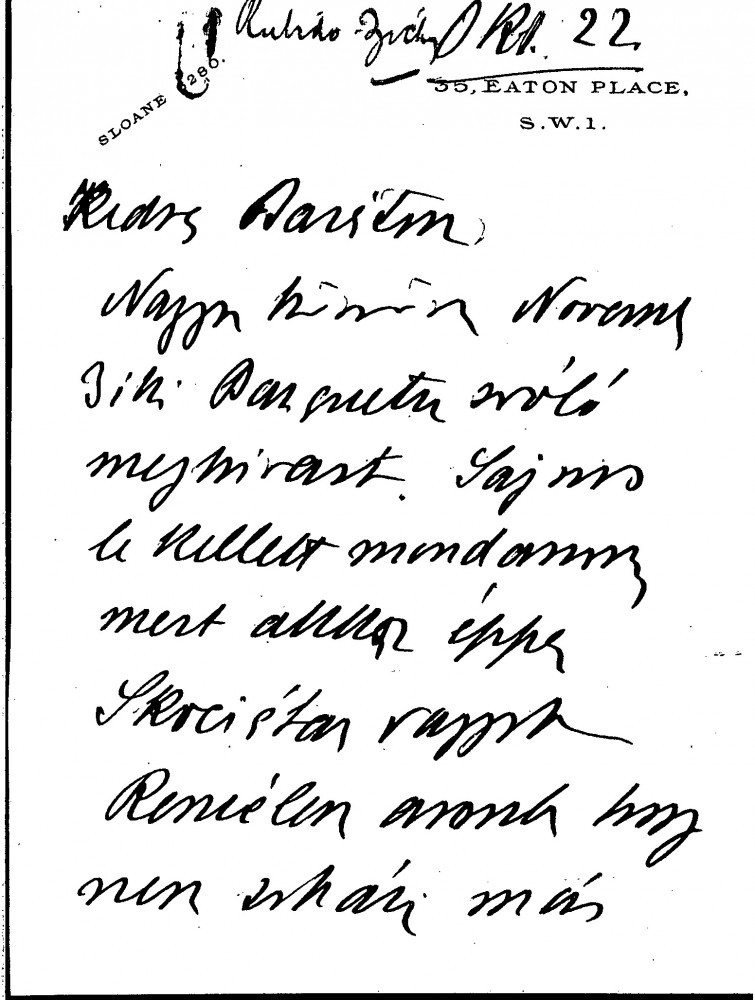 Rubido-Zichy Okt. 22
SLOANE 280.
35, EATON PLACE,
S.W.1.
Kedves Barátom,
Nagyon köszönöm Novemb
3iki Banquetre szóló
meghivast. Sajnos
le kellett mondanom
mert akkor éppen
Skociában vagyok
Remélem azonban hogy
nem sokára más